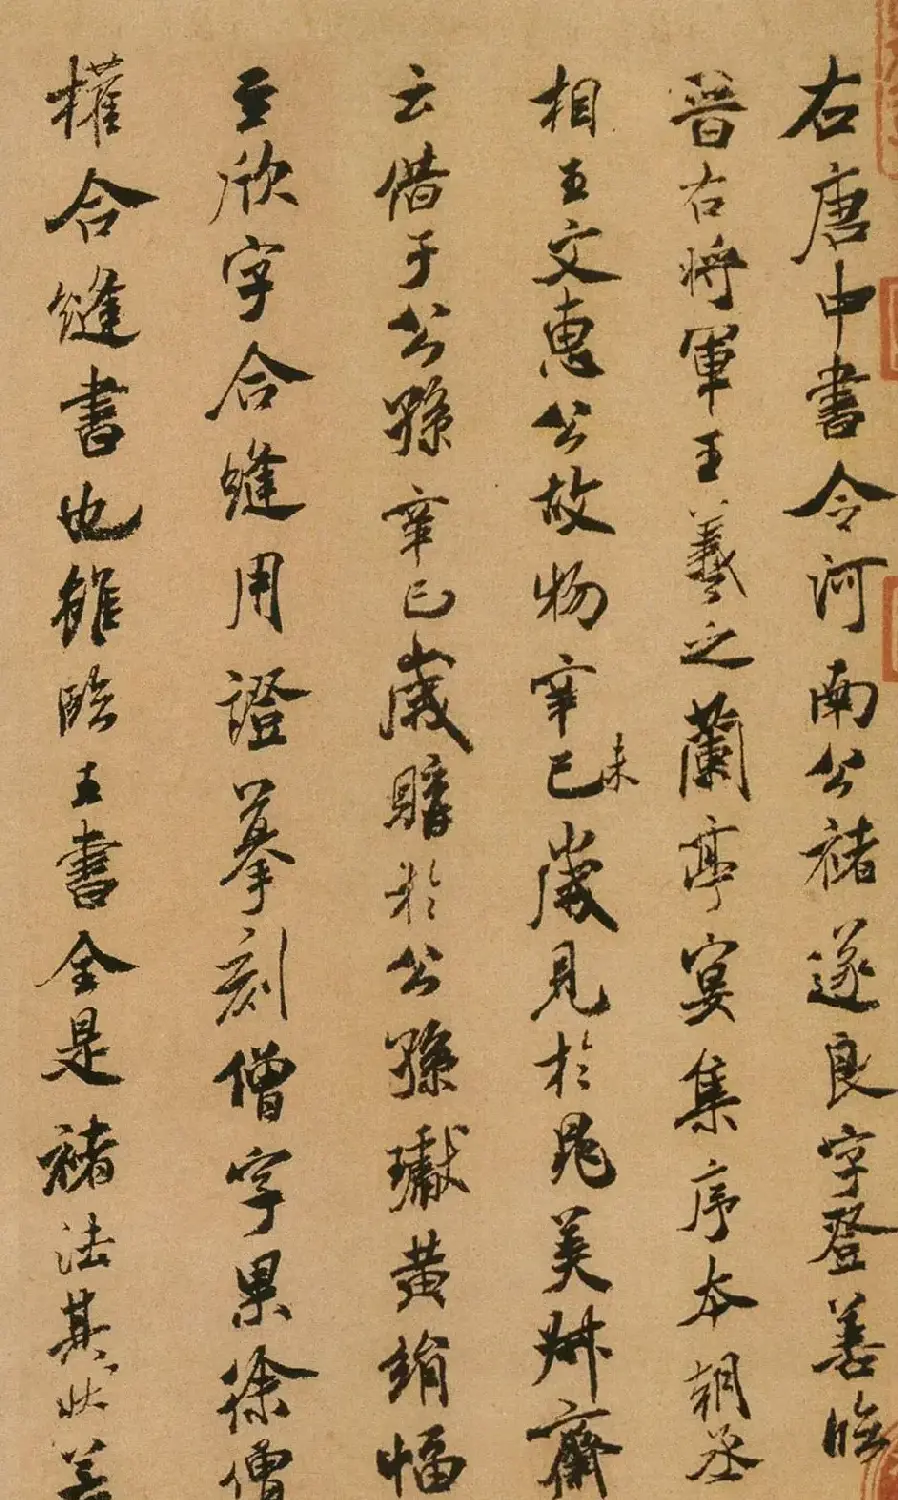 右唐中書令河南公褚遂良字登善臨
晉右將軍王羲之蘭亭宴集序本朝丞
相王文惠公故物辛巳未歲見於晁美叔齋
云借于公孫辛巳歲購於公孫瓛黃絹幅
至欣字合縫用證摹刻僧字果徐僧
權合縫書也雖臨王書全是褚法其狀若